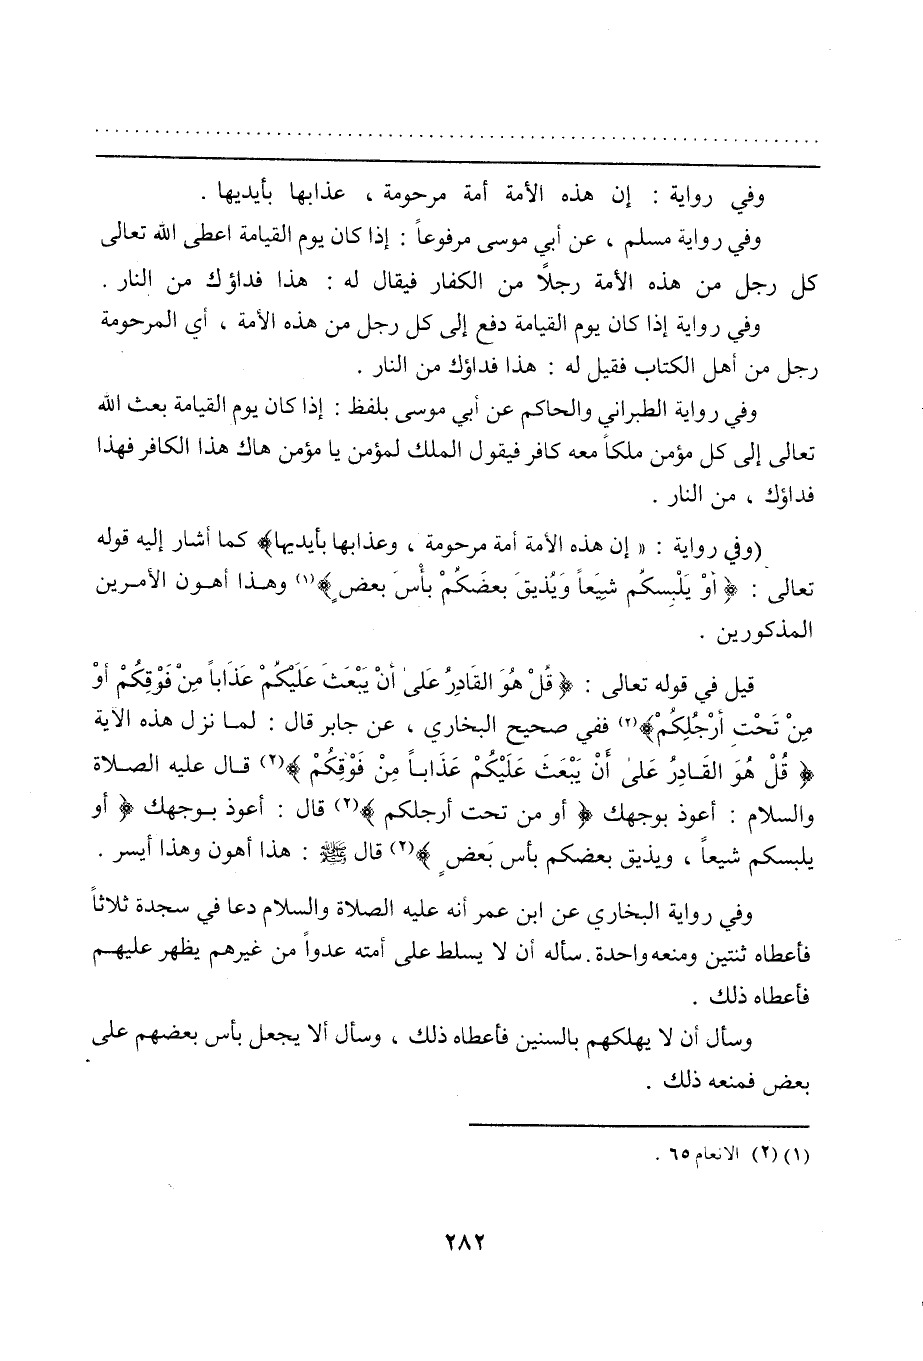 وفي رواية : إن هذه الأمة أمة مرحومة ، عذابها بأيديها .
وفي رواية مسلم ، عن أبي موسى مرفوعاً : إذا كان يوم القيامة اعطى الله تعالى
كل رجل من هذه الأمة رجلاً من الكفار فيقال له : هذا فداؤك من النار .
وفي رواية إذا كان يوم القيامة دفع إلى كل رجل من هذه الأمة ، أي المرحومة
رجل من أهل الكتاب فقيل له : هذا فداؤك من النار .
وفي رواية الطبراني والحاكم عن أبي موسى بلفظ : إذا كان يوم القيامة بعث الله
تعالى إلى كل مؤمن ملكاً معه كافر فيقول الملك لمؤمن يا مؤمن هاك هذا الكافر فهذا
فداؤك ، من النار .
(وفي رواية : « إن هذه الأمة أمة مرحومة ، وعذابها بأيديها﴾ كما أشار إليه قوله
تعالى : ﴿ أَوْ يَلْبِسكُم شيَعاً وَيُذيقَ بعضَكُمْ بأْسَ بَعض ٍ﴾(١) وهذا أهون الأمرين
المذكورين .
قيل في قوله تعالى : ﴿ قُلْ هُوَ القَادِرُ عَلىٰ أنْ يَبْعَثَ عَلَيْكُمْ عَذَاباً مِنْ فَوْقِكُمْ أوْ
مِنْ تَحْتِ أرْجُلِكُمْ﴾(٢) ففي صحيح البخاري ، عن جابر قال : لما نزل هذه الآية
﴿ قُلْ هُوَ القَادِرُ عَلىٰ أَنْ يَبْعَثَ عَلَيْكُمْ عَذَاباً مِنْ فَوْقِكُمْ ﴾(٢) قال عليه الصلاة
والسلام : أعوذ بوجهك ﴿ أو من تحت أرجلكم ﴾(٢) قال : أعوذ بوجهك ﴿ أو
يلبسكم شيعاً ، ويذيق بعضكم بأس بَعض ٍ ﴾(٢) قال ﷺ : هذا أهون وهذا أيسر .
وفي رواية البخاري عن ابن عمر أنه عليه الصلاة والسلام دعا في سجدة ثلاثاً
فأعطاه ثنتين ومنعه واحدة . سأله أن لا يسلط على أمته عدواً من غيرهم يظهر عليهم
فأعطاه ذلك .
وسأل أن لا يهلكهم بالسنين فأعطاه ذلك ، وسأل ألا يجعل بأس بعضهم على
بعض فمنعه ذلك .
(١) (٢) الانعام ٦٥ .
٢٨٢